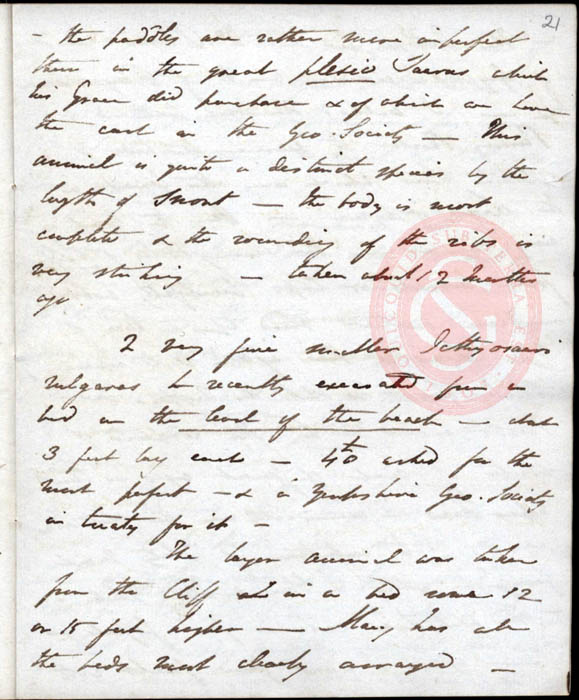 21
- the paddles are rather more imperfect
than in the great plesio Saurus which
his Grace did purchase & of which we have
the cast in the Geo. Society — This
animal is quite a distinct species by the
length of Snout — the body is most
complete & the rounding of the ribs is
very striking — taken about 12 months
ago
2 very fine smaller Icthyosauri
vulgares recently excavated from a
bed on the level of the beach — about
3 feet long each — 40 asked for the
most perfect — & a Yorkshire Geo. Society
in treaty for it —
The larger animal was taken
from the Cliff in a bed some 12
or 15 feet higher — Mary has all
the beds most clearly arranged —